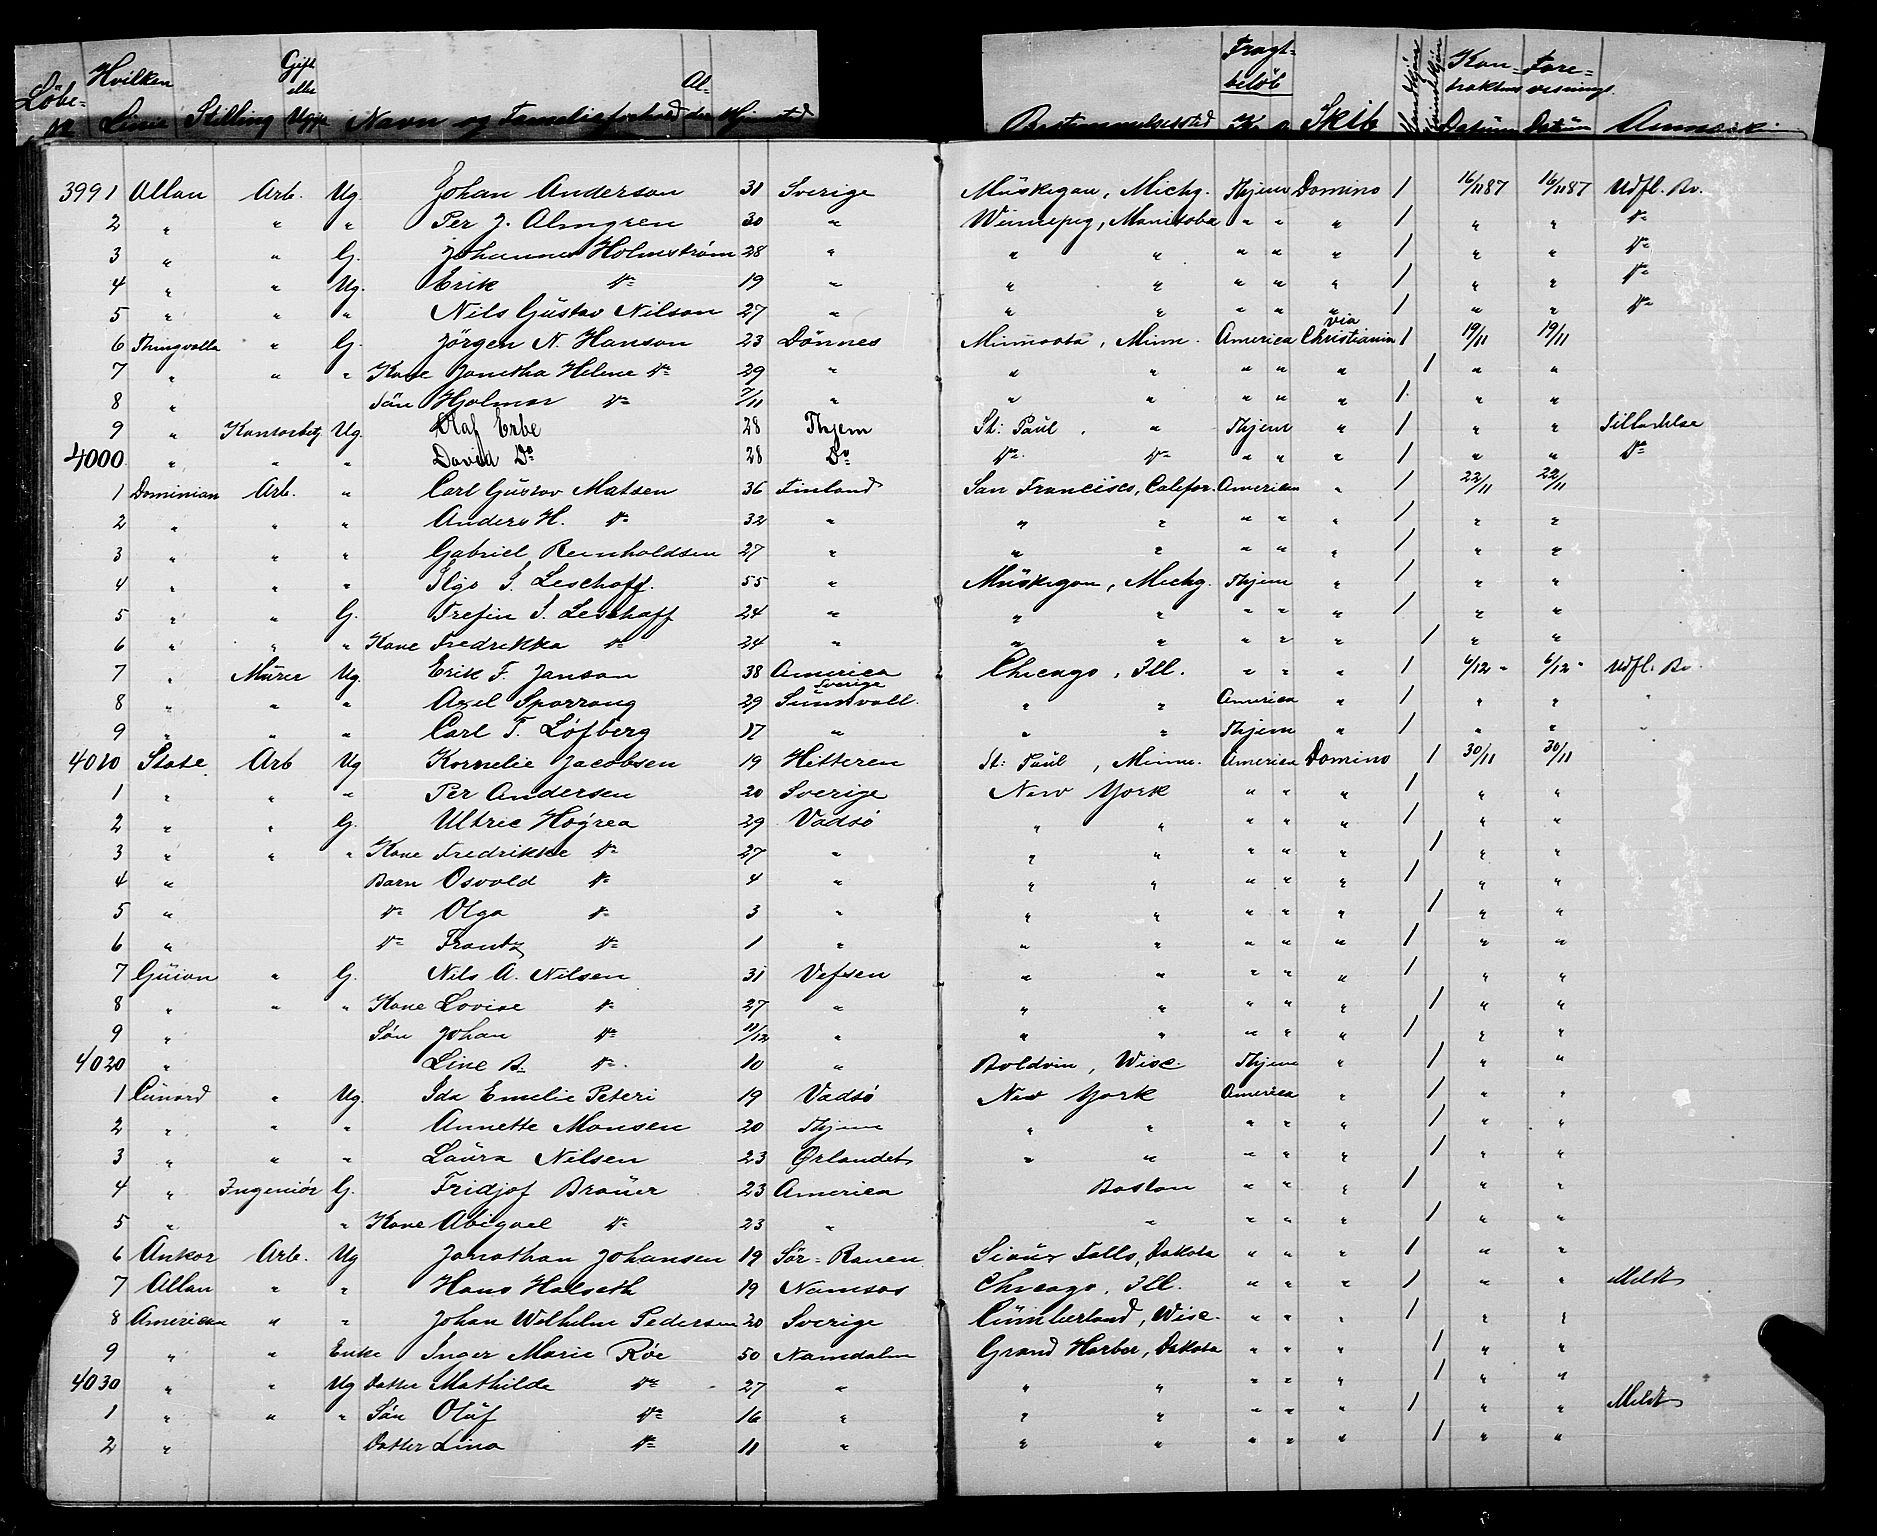 Løbe- Hvilken Linie Stilling Gift eller Ugift Navn og Familieforhold Al- der Hj. sted Bestemmelsessted Fragt- beløb K. ø Skib Mandkjøn Kvindekjøn Kon- traktens Datum Fore- visnings Datum Anmærk.
3991 Allan Arb. Ug. Johan Anderson 31 Sverige Müskegan, Michg. Thjem Domino 1 16/11 87 16/11 87 Udfl. Bv.
2 " " " Per J. Almgren 30 " Winnepeg, Manitoba " " " 1 " " Do
3 " " G. Johannes Holmström 28 " " " " " " 1 " " Do
4 " " Ug. Erik Do 19 " " " " " " 1 " " Do
5 " " " Nils Güstav Nilson 27 " " " " " " 1 " " Do
6 Thingvalla " G. Jörgen N. Hanson 23 Dönnes Minnoota, Minn. America via Christiania 1 19/11 19/11
7 " " " Kone Janetha Helene Do 29 " " " " " 1 " "
8 " Sön Hjalmar Do 7/11 " " " " " 1 " "
9 " Kontorbetj Ug. Olaf Erbe 28 Thjem St: Paül, " Thjem " 1 " " Tilladelse
4000 " " " David Do 28 Do Do Do " " " 1 " " Do
1 Dominian Arb. " Carl Güstav Matsen 36 Finland San Francisco, Califor. American " 1 22/11 22/11
2 " " " Anders H. Do 32 " " " " " " 1 " "
3 " " " Gabriel Reinholdsen 27 " " " " " " 1 " "
4 " " " Ilgo I. Leschoff. 55 " Müskegon, Michg. Thjem " 1 " "
5 " " G. Trefin I. Leschoff 24 " " " " " " 1 " "
6 " " " Kone Fredrikka Do 24 " " " " " " 1 " "
7 " Mürer Ug. Erik F. Janson 38 America Chicago, Ill. " " " 1 6/12 " 6/12 " Udfl. Bv.
8 " " " Axel Sparrong 29 Sverige Sünsvall. " " America " 1 " " "
9 " " " Carl T. Löfberg 17 " " " Thjem " 1 " " "
4010 State Arb Ug Kornelie Jacobsen 19 Hitteren St: Paül, Minn. America Domino 1 30/11 30/11
1 " " " Per Andersen 20 Sverige New York " " " 1 " "
2 " " G. Ultric Högrea 29 Vadsö " " " " " 1 " "
3 " " " Kone Fredrikke Do 27 " " " " " " 1 " "
4 " Barn Osvold Do 4 " " " " " " 1 " "
5 " Do Olga Do 3 " " " " " " 1 " "
6 " Do Frantz Do 1 " " " " " " 1 " "
7 Güion " G. Nils A. Nilsen 31 Vefsen " " " " " 1 " "
8 " " " Kone Lovise Do 27 " " " " " " 1 " "
9 " Søn Johan Do 11/12 " " " " " " 1 " "
4020 " Line B. Do 10 " Boldvin, Wisc. Thjem " 1 " "
1 Cünard " Ug. Ida Emelie Peteri 19 Vadsö New York America " 1 " "
2 " " " Annette Monsen 20 Thjem " " " " " 1 " "
3 " " " Laüra Nilsen 23 Ørlandet " " " " " 1 " "
4 " Ingeniör G. Fridjof Braüer 23 America Boston " " " 1 " "
5 " " Kone Abigael Do 23 " " " " " 1 " "
6 Ankor Arb. Ug Jonathan Johansen 19 Sör-Ranen Sioux Falls, Dakota " " " 1 " "
7 Allan " " Hans Halseth 19 Namsos Chicago, Ill. " " " 1 " " Meldt
8 American " " Johan Wilhelm Pedersen 20 Sverige Cümberland, Wisc. " " " 1 " "
9 " " Enke Inger Marie Röe 50 Namdalen Grand Harber, Dakota " " " 1 " "
4030 " " Ug Datter Mathilde Do 27 " " " " " " 1 " "
1 " " " Sön Olüf Do 16 " " " " " " 1 " " Meldt
2 " Datter Lina Do 11 " " " " " " 1 " "